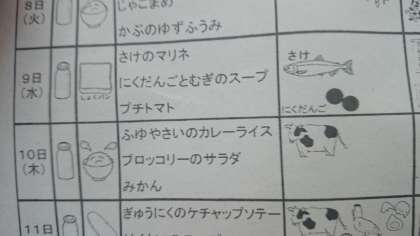 8日
(火)
じゃこまめ
かぶのゆずふうみ
9日
(水)
しょくパン
さけのマリネ
にくだんごとむぎのスープ
プチトマト
さけ
にくだんご
10日
(木)
ふゆやさいのカレーライス
ブロッコリーのサラダ
みかん
11日
ぎゅうにくのケチャップソテー